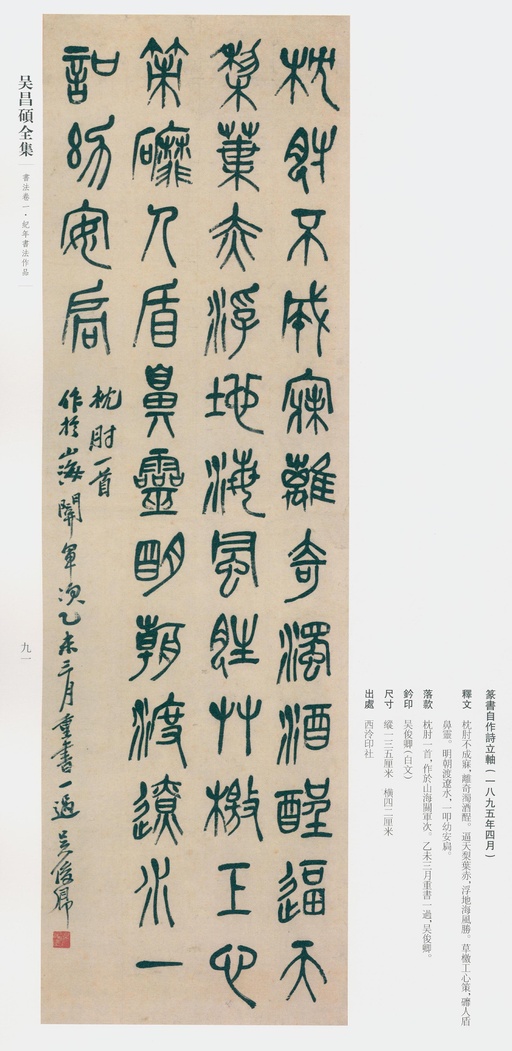 篆書自作詩立軸（一八九五年四月）
釋文　枕肘不成寐，離奇濁酒醒。逼天梨葉赤，浮地海風勝。草檄工心策，礳人盾
鼻靈。明朝渡遼水，一叩幼安扃。
落款　枕肘一首，作於山海關軍次。乙未三月重書一過，吴俊卿。
鈐印　吴俊卿（白文）
尺寸　縱一三五厘米　橫四二厘米
出處　西泠印社
枕肘不成寐離奇濁酒醒逼天
梨葉赤浮地海風胜艸檄工心
策礳人盾鼻靈明朝渡遼水一
叩幼安扃
枕肘一首
作於山海關軍次乙未三月重書一過吴俊卿
吴昌碩全集
書法卷一·紀年書法作品
九一